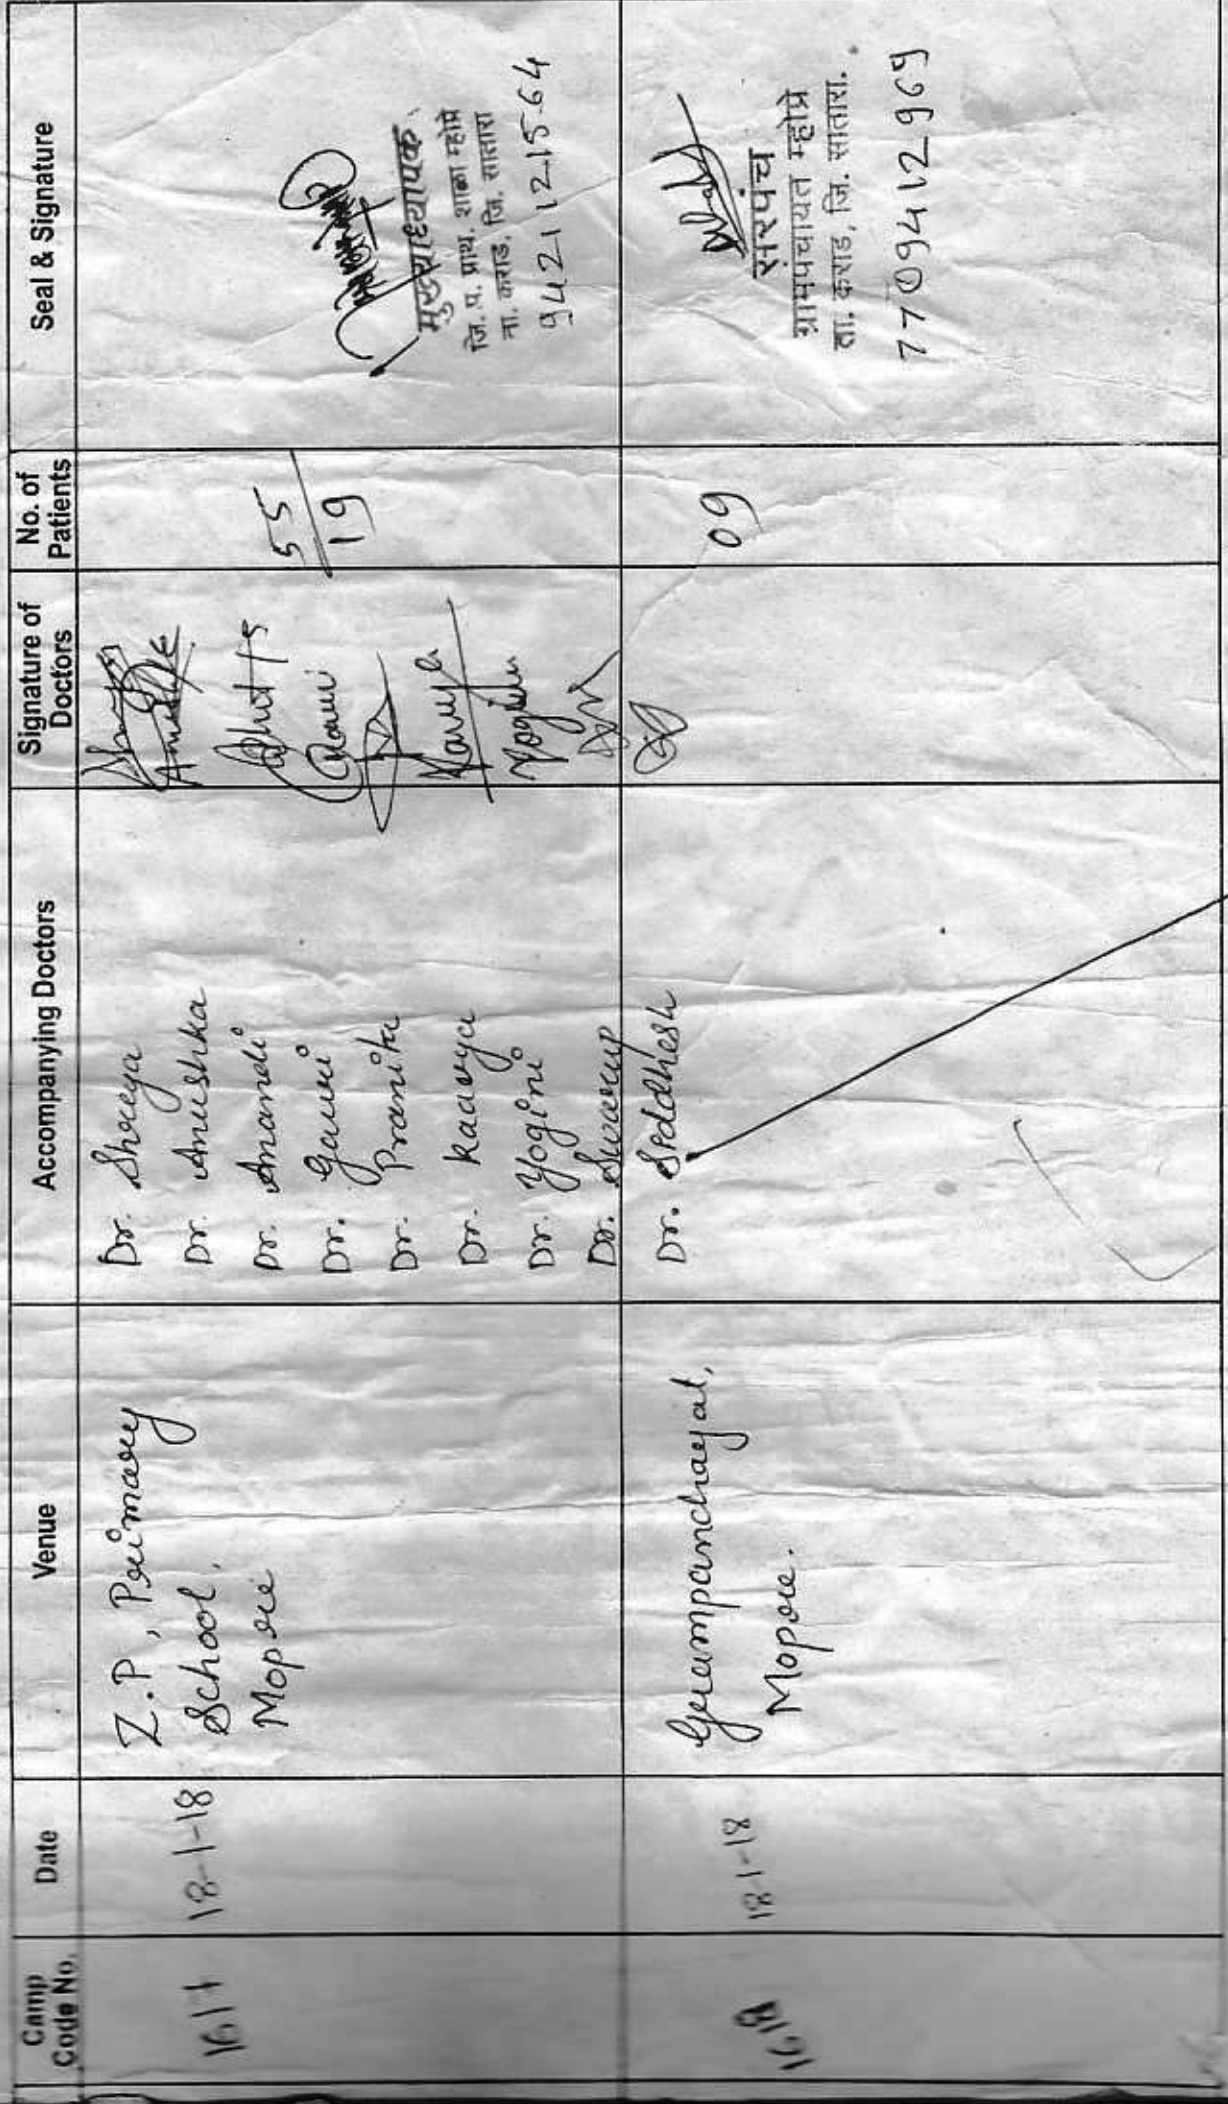 Camp Code No.
Date
Venue
Accompanying Doctors
Signature of Doctors
No. of Patients
Seal & Signature
18-1-18
Z.P, Primary
School,
Mopre
Dr. Shreya
Dr. Anushka
Dr. Anandi
Dr. Gauri
Dr. Pranita
Dr. Kaavya
Dr. Yogini
Dr. Swarup
Dr. Siddhesh
Anushka
Gauri
Kavya
Yogini
55
19
मुख्याध्यापक
जि. प. प्राथ. शाळा म्होप्रे
ता. कराड, जि. सातारा
9421121564
1618
18-1-18
Grampanchayat,
Mopre.
09
सरपंच
ग्रामपंचायत म्होप्रे
ता. कराड, जि. सातारा.
7709412969